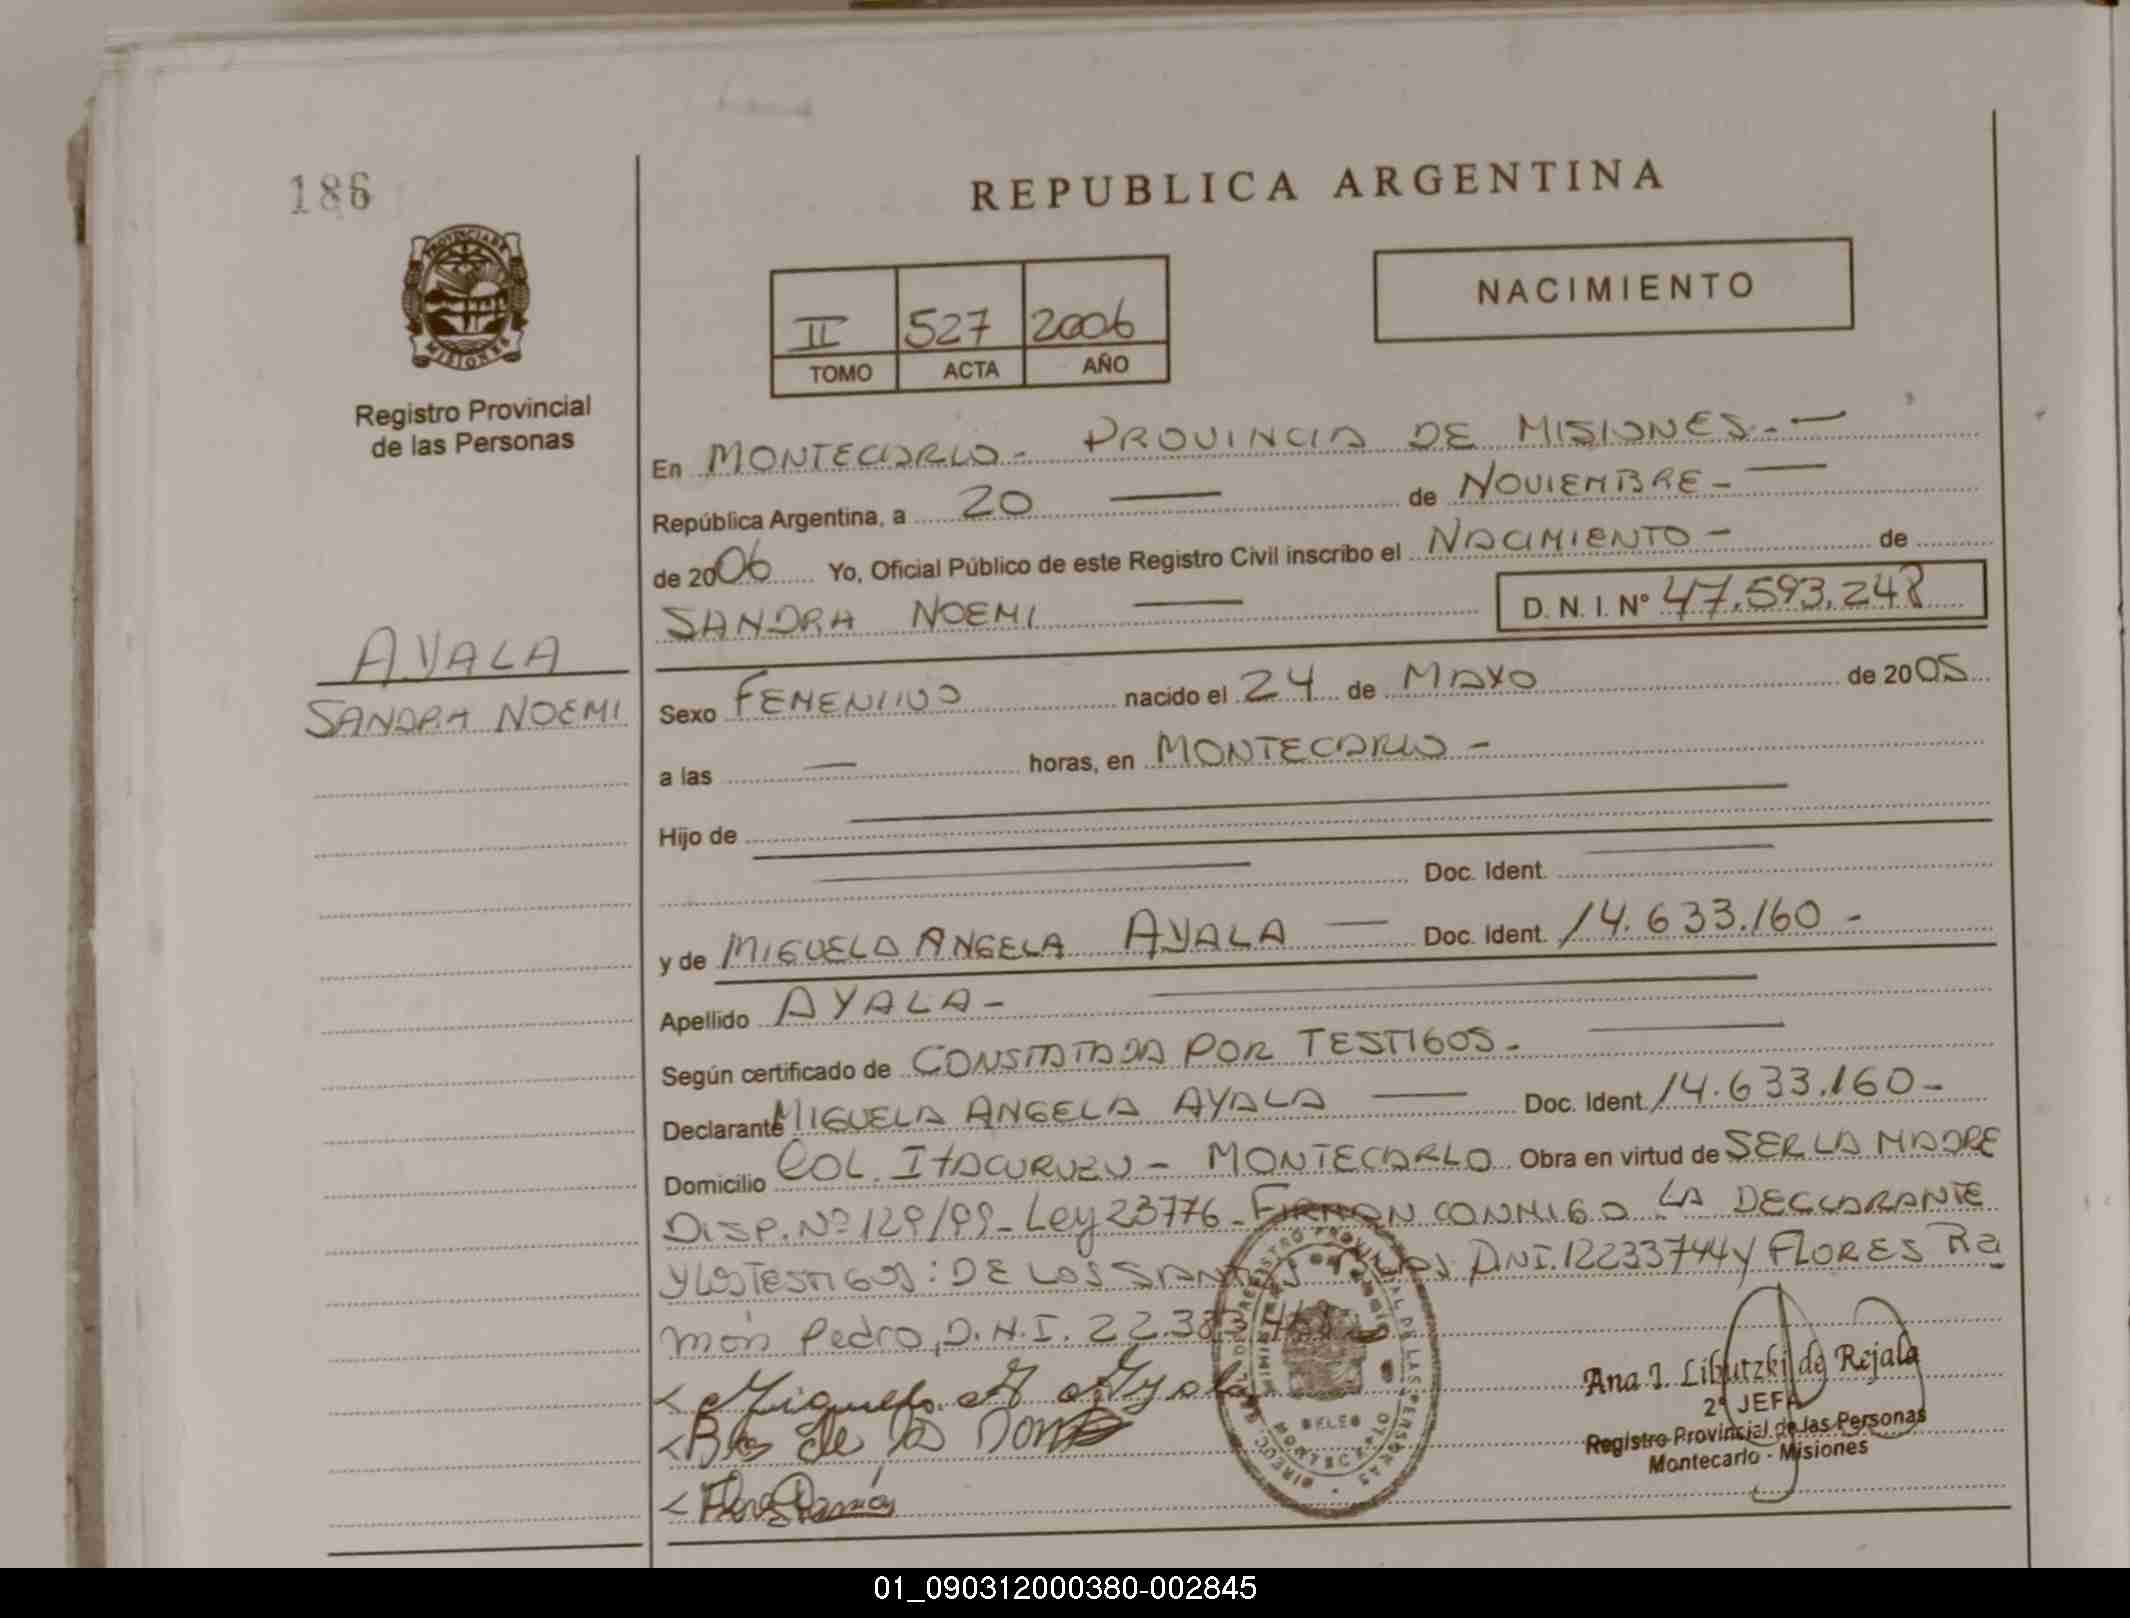 186
REPUBLICA ARGENTINA
PROVINCIA DE
MISIONES
NACIMIENTO
II 527 2006
TOMO ACTA AÑO
Registro Provincial
de las Personas
En MONTECARLO - PROVINCIA DE MISIONES.-—
República Argentina, a 20 — de NOVIEMBRE -—
de 2006 Yo, Oficial Público de este Registro Civil inscribo el NACIMIENTO - de
SANDRA NOEMI — D. N. I. Nº 47.593.248
AYALA
SANDRA NOEMI
Sexo FEMENINO nacido el 24 de MAYO de 2005
a las — horas, en MONTECARLO -
Hijo de —
— Doc. Ident. —
y de MIGUELA ANGELA AYALA — Doc. Ident. 14.633.160 -
Apellido AYALA - —
Según certificado de CONSTATADA POR TESTIGOS - —
Declarante MIGUELA ANGELA AYALA — Doc. Ident. 14.633.160 -
Domicilio COL. ITACURUZU - MONTECARLO Obra en virtud de SER LA MADRE
DISP. Nº 129/99 - Ley 23776 - FIRMAN CONMIGO LA DECLARANTE
Y LOS TESTIGOS: DE LOS SANTOS DNI. 12233744 Y FLORES Ra
món Pedro, D.N.I. 22.383.
< Miguela A Ayala
< Blas de los
< Flores Ramón
MONTECARLO
Ana I. Libutzki de Rejala
2º JEFA
Registro Provincial de las Personas
Montecarlo - Misiones
01_090312000380-002845